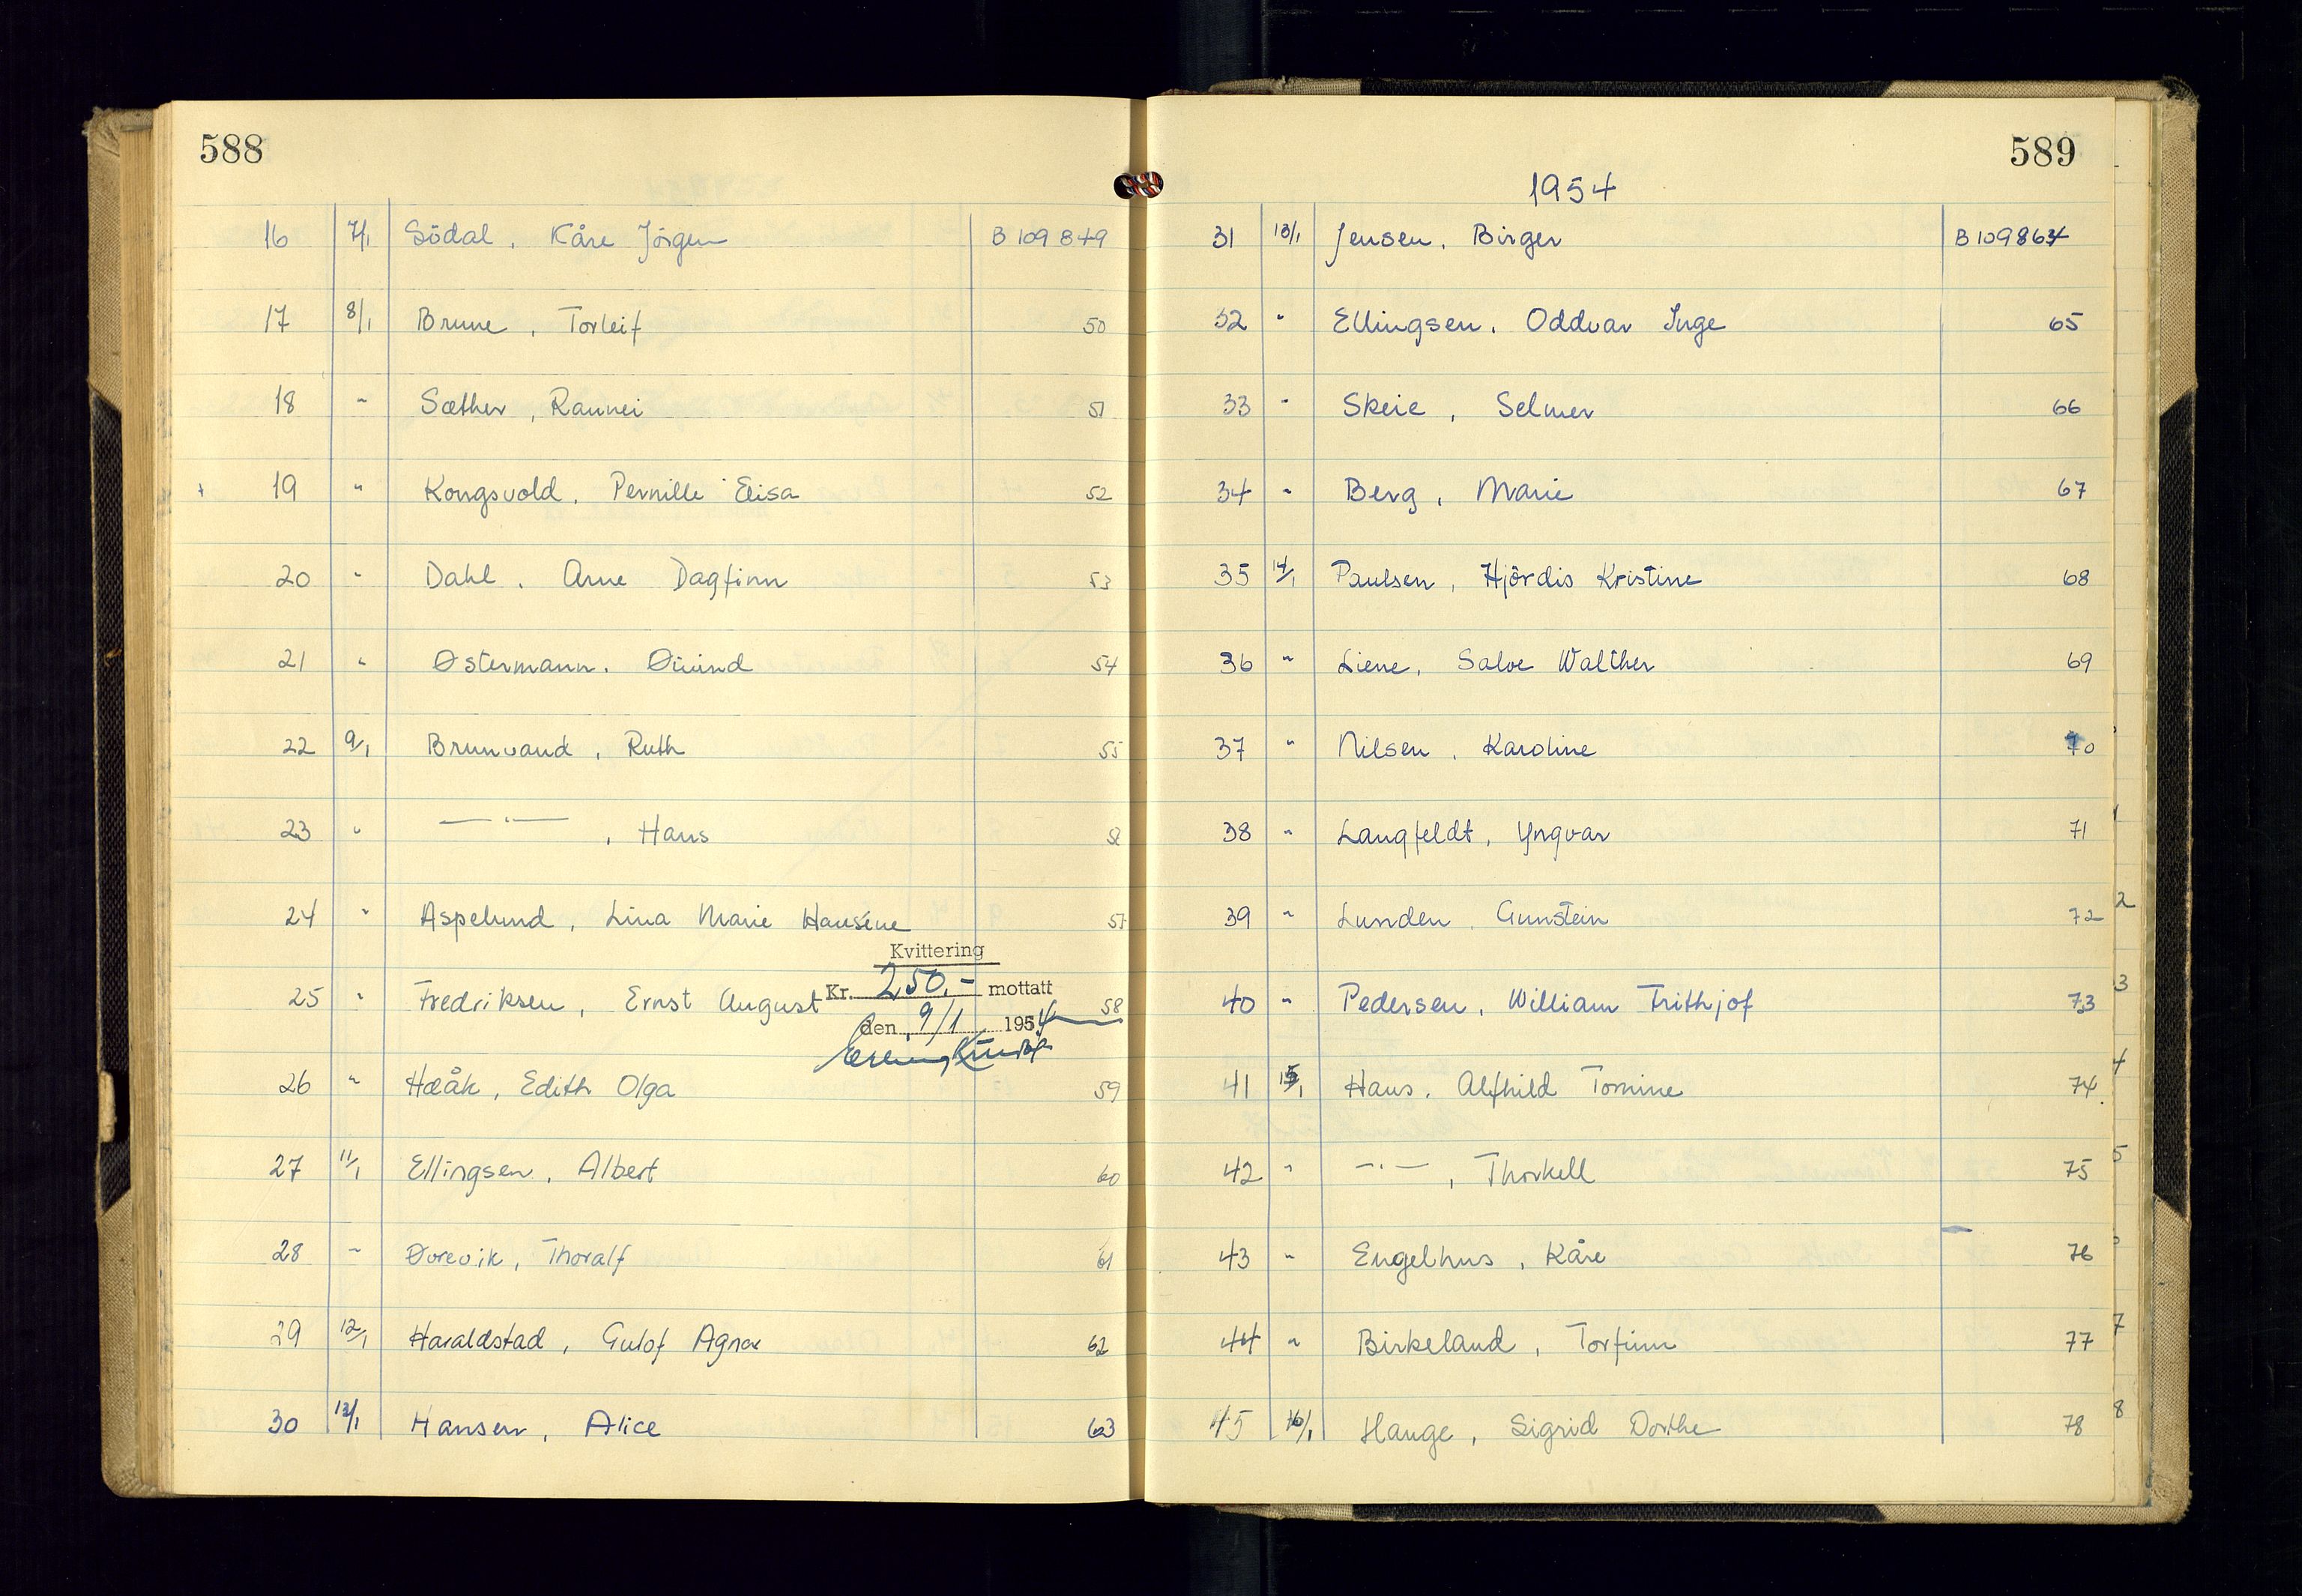 588
16 7/1 Södal, Kåre Jörgen B 109 849
17 8/1 Brune, Torleif 50
18 " Sæther, Raunei 51
19 " Kongsvold, Pernille Elisa 52
20 " Dahl, Arne Dagfinn 53
21 " Østermann, Øivind 54
22 9/1 Brunvand, Ruth 55
23 " — " —, Hans 56
24 " Aspelund, Lina Marie Hansine 57
Kvittering
25 " Fredriksen, Ernst August Kr. 250.- mottatt 58
den 9/1 1954
26 " Hååk, Edith Olga 59
27 11/1 Ellingsen, Albert 60
28 " Dvrevik, Thoralf 61
29 12/1 Haraldstad, Gulof Agnar 62
30 13/1 Hansen, Alice 63
589
1954
31 13/1 Jensen, Birger B 109864
32 " Ellingsen, Oddvar Inge 65
33 " Skeie, Selmer 66
34 " Berg, Marie 67
35 14/1 Paulsen, Hjördis Kristine 68
36 " Liene, Salve Walther 69
37 " Nilsen, Karoline 70
38 " Langfeldt, Yngvar 71
39 " Lunden, Gunstein 72
40 " Pedersen, William Frithjof 73
41 15/1 Haus, Alfhild Tomine 74
42 " — " —, Thorkell 75
43 " Engelhus, Kåre 76
44 " Birkeland, Torfinn 77
45 16/1 Hauge, Sigrid Dorthe 78